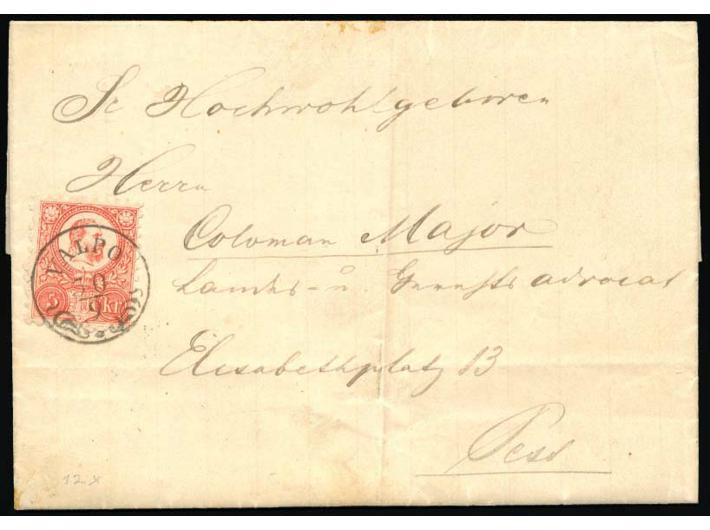 Sr Hochwohlgeboren
Herrn
Coloman Major
Landes- u. Gerichts advocat
Elisabethplatz 13
Pest
VALPO
10
9
5 KR
12.x